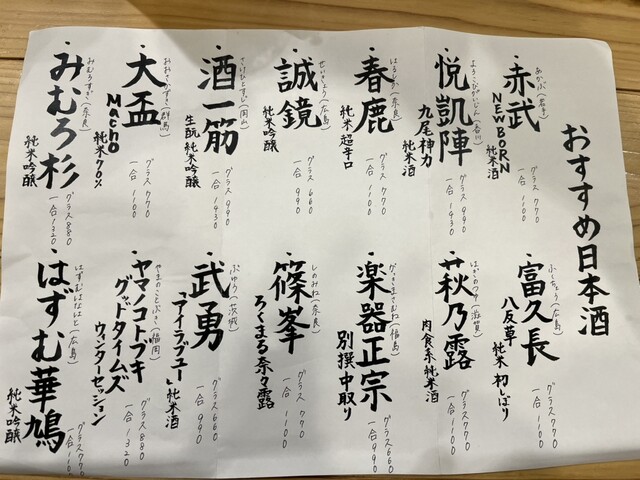 おすすめ日本酒
・赤武
あかぶ(岩手)
NEWBORN
純米酒
グラス 770
一合 1100
・悦凱陣
よろこびがいじん(香川)
九尾神力
純米酒
グラス 990
一合 1430
・春鹿
はるしか(奈良)
純米 超辛口
グラス 770
一合 1100
・誠鏡
せいきょう(広島)
純米吟醸
グラス 660
一合 990
・酒一筋
さけひとすじ(岡山)
生酛 純米吟醸
グラス 990
一合 1430
・大盃
おおさかずき(群馬)
Macho
純米70%
グラス 770
一合 1100
・みむろ杉
みむろすぎ(奈良)
純米吟醸
グラス 880
一合 1320
・富久長
ふくちょう(広島)
八反草 純米 初しぼり
グラス 770
一合 1100
・萩乃露
はぎのつゆ(滋賀)
肉食系純米酒
グラス 770
一合 1100
・楽器正宗
がっきまさむね(福島)
別撰中取り
グラス 660
一合 990
・篠峯
しのみね(奈良)
ろくまる 奈々露
グラス 770
一合 1100
・武勇
ぶゆう(茨城)
「アイラブユー」純米酒
グラス 660
一合 990
・ヤマノコトブキ
やまのことぶき(福岡)
グッドタイムズ
ウィンターセッション
グラス 880
一合 1320
・はずむ華鳩
はずむはなはと(広島)
純米吟醸
グラス 770
一合 1100